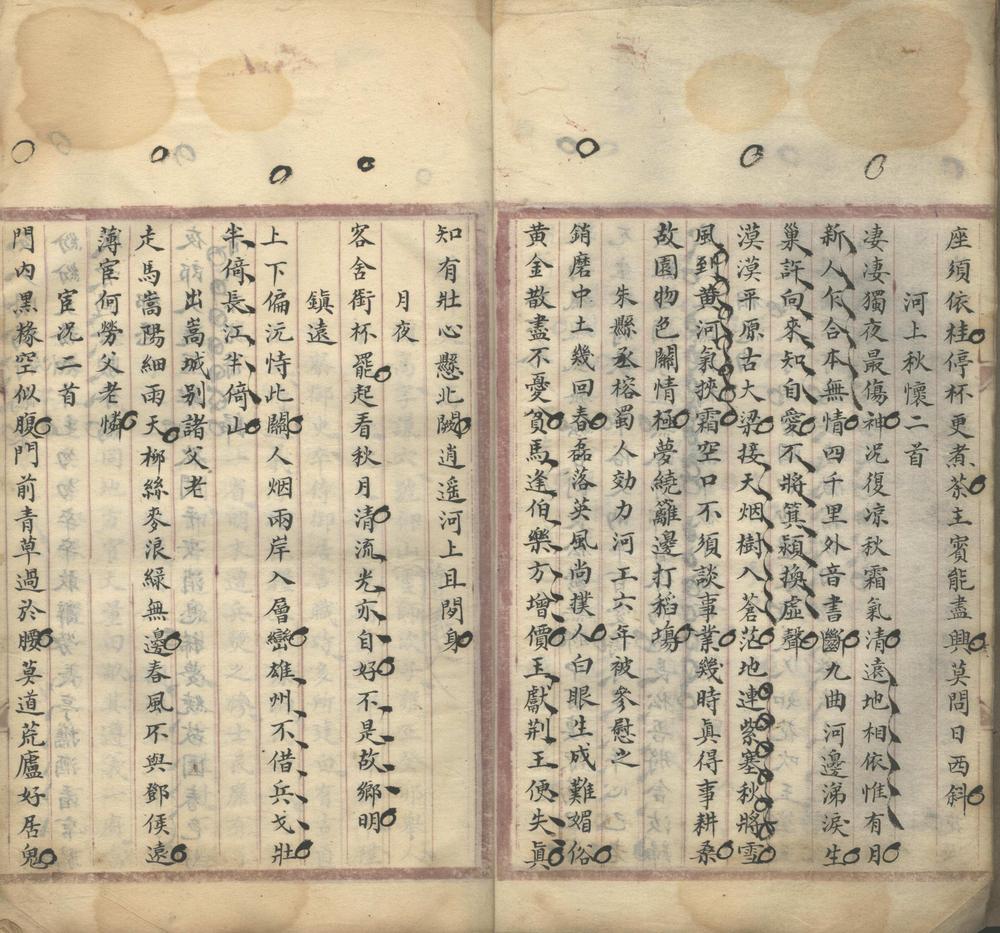 座須依桂停杯更煮茶主賓能盡興莫問日西斜
河上秋懷二首
凄凄獨夜最傷神况復凉秋霜氣清遠地相依惟有月
新人何合本無情四千里外音書斷九曲河邊涕淚生
巢許向來知自愛不將箕潁換虛聲
漠漠平原古大梁接天烟樹入蒼茫地連紫塞秋將雪
風到黄河氣挾霜空口不須談事業幾時真得事耕桑
故園物色關情極夢繞籬邊打稻場
朱縣丞榕蜀人効力河工六年被參慰之
銷磨中土幾回春磊落英風尚撲人白眼生成難媚俗
黄金散盡不憂貧馬逢伯樂方增價玉獻荆王便失真
知有壯心懸北闕逍遥河上且閒身
月夜
客舍衔杯罷起看秋月清流光亦自好不是故鄉明
鎮遠
上下偏沅恃此關人烟兩岸入層巒雄州不借兵戈壯
半倚長江半倚山
出嵩城别諸父老
走馬嵩陽細雨天栁絲麥浪綠無邊春風不與鄧侯遠
薄宦何勞父老憐
宦况二首
門内黑椽空似腹門前青草過於腰莫道荒廬好居鬼